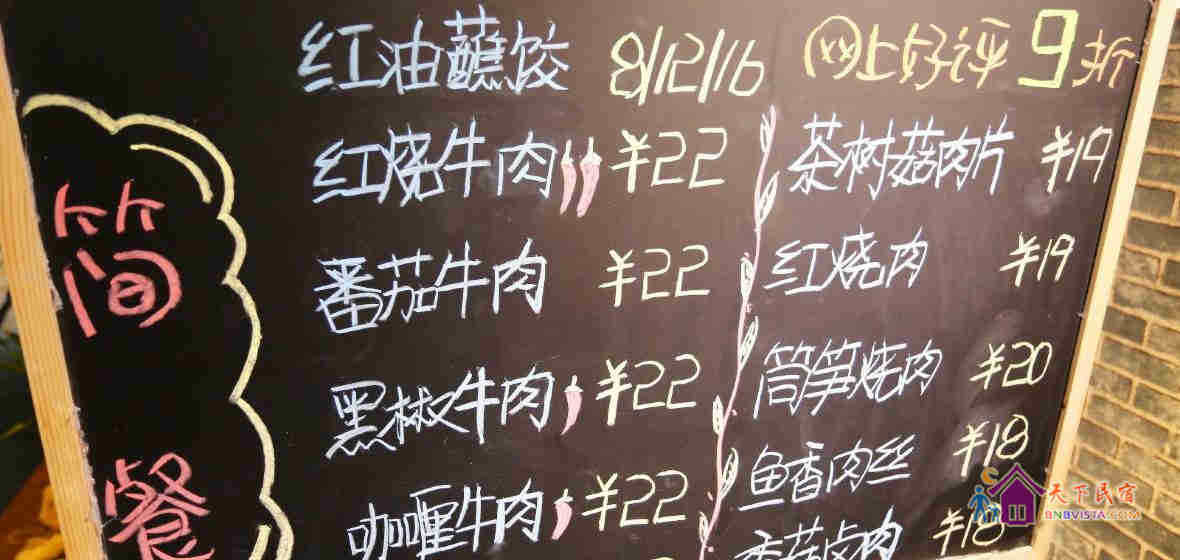 简餐
红油蘸饺 8/12/16
红烧牛肉 ¥22
番茄牛肉 ¥22
黑椒牛肉 ¥22
咖喱牛肉 ¥22
网上好评9折
茶树菇肉片 ¥19
红烧肉 ¥19
筒笋烧肉 ¥20
鱼香肉丝 ¥18
香菇卤肉 ¥18
天下民宿
BNBVISTA.COM